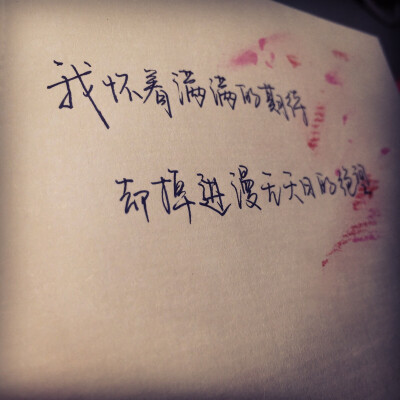 我怀着满满的期待
却掉进漫无天日的绝望